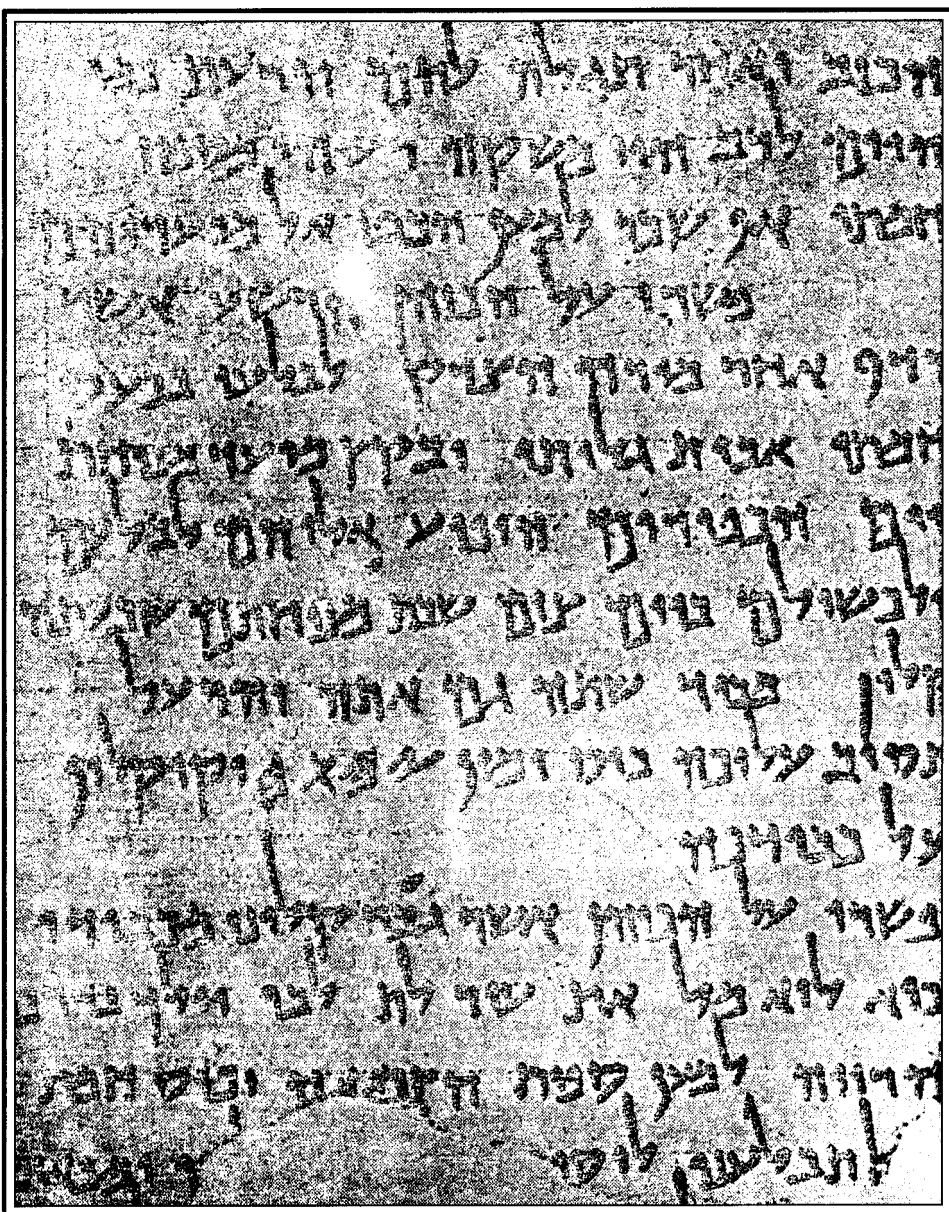 הכזב ואחר תגלה להם הדעת כמי
הים לרב הוי משקה רעיהו מספח
חמתו אף שכר למען הבט אל מועדיהם
פשרו על הכוהן הרשע אשר
רדף אחר מורה הצדק לבלעו בכעס
חמתו אבית גלותו ובקץ מועד מנוחת
יום הכפורים הופיע אליהם לבלעם
ולכשילם ביום צום שבת מנוחתם שבעתה
קלון מכבוד שתה גם אתה והרעל
תסוב עליכה כוס ימין 𐤉𐤄𐤅𐤄 וקיקלון
על כבודכה
פשרו על הכוהן אשר גבר קלונו מכבודו
כיא לוא מל את עורלת לבו וילך בדרכי
הרויה למען ספות הצמאה וכוס חמת
תבלענו לוסיף